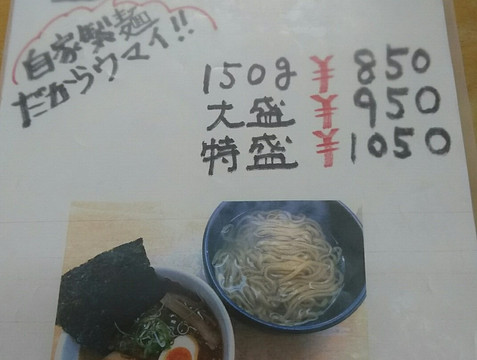 自家製麺
だからウマイ!!
150g ¥850
大盛 ¥950
特盛 ¥1050